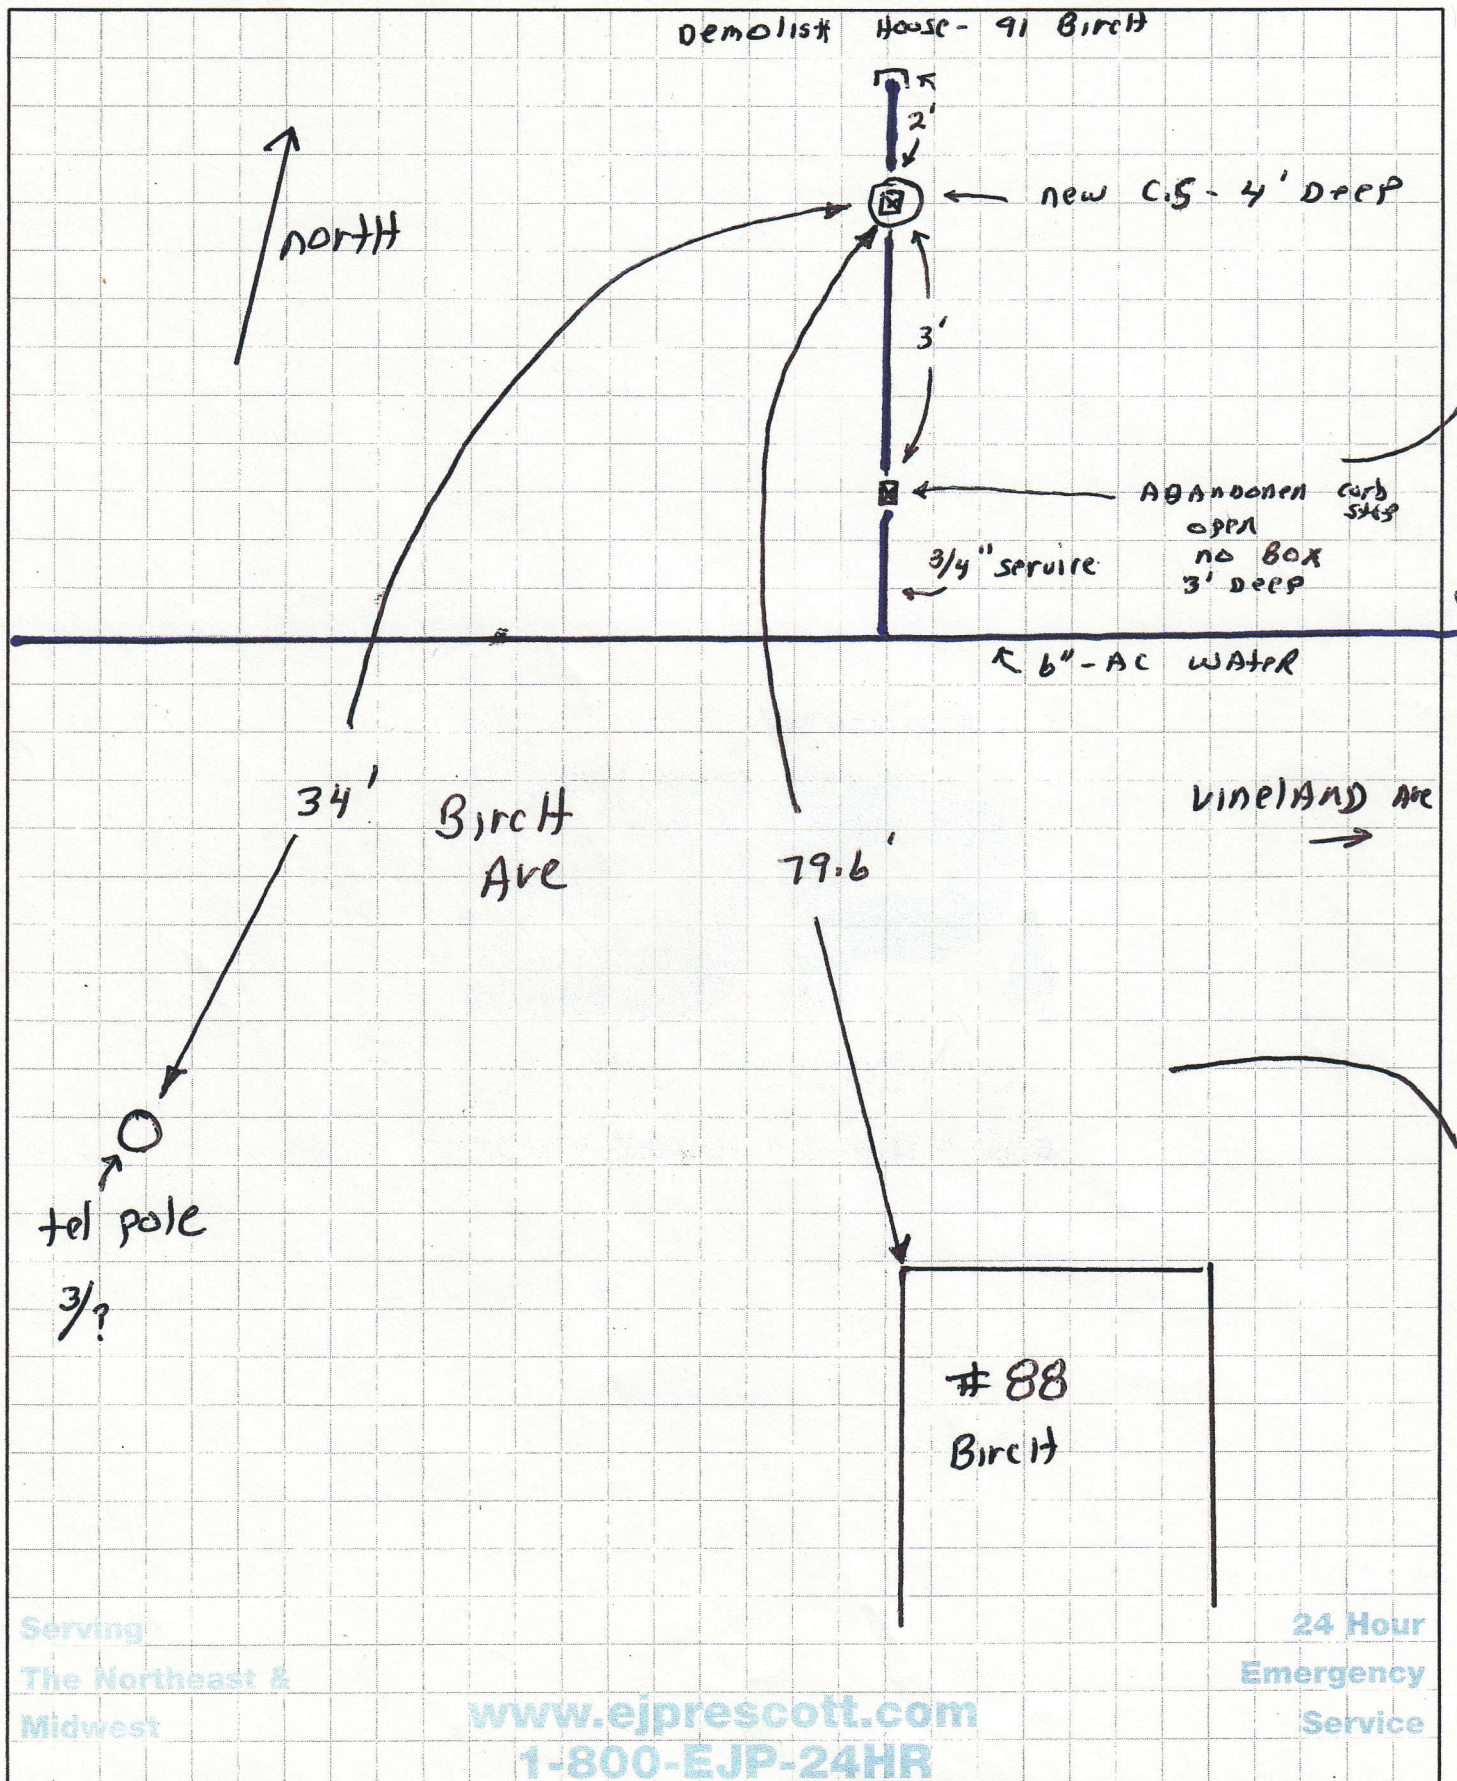 Demolish House - 91 Birch
2'
new C.S - 4' Deep
north
3'
ABAndonen curb
stop
open
no Box
3' Deep
3/4" service
6" - AC WAter
34'
Birch
Ave
79.6'
VinelAnD Ave
tel pole
3/?
# 88
Birch
Serving
The Northeast &
Midwest
www.ejprescott.com
1-800-EJP-24HR
24 Hour
Emergency
Service